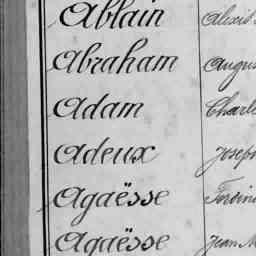 Ablain Alexis
Abraham Augus
Adam Charle
Adeux Joseph
Agaësse Ferdin
Agaësse Jean M